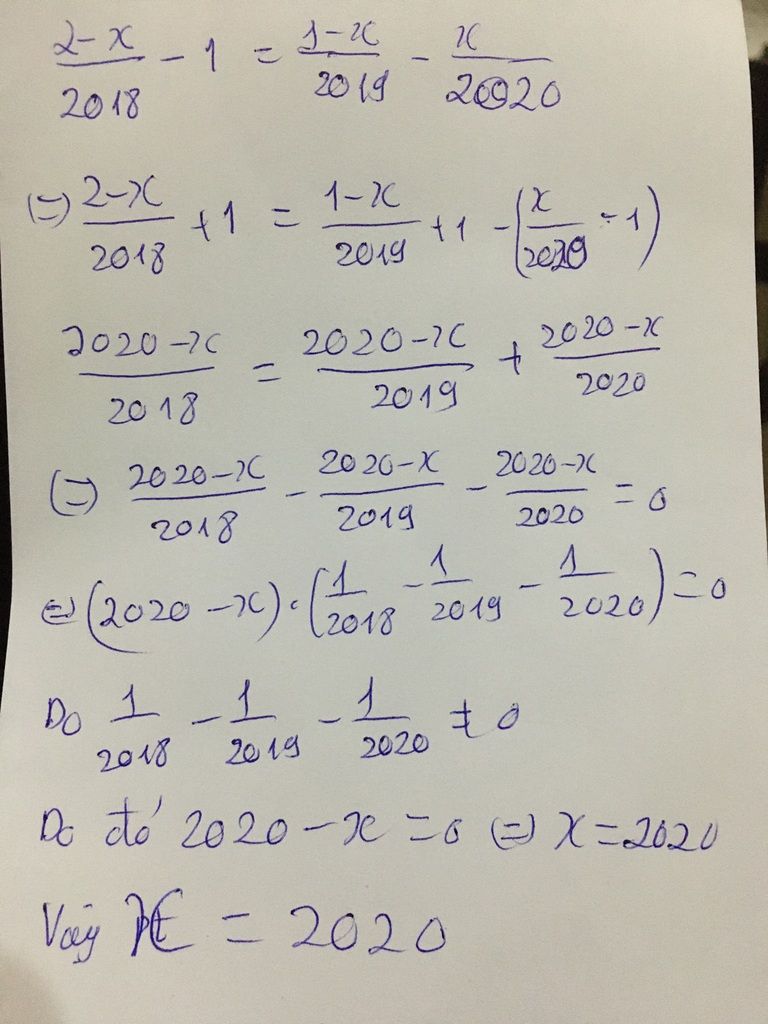 2-x/2018 - 1 = 1-x/2019 - x/2020
(=) 2-x/2018 + 1 = 1-x/2019 + 1 - (x/2020 - 1)
2020-x/2018 = 2020-x/2019 + 2020-x/2020
(=) 2020-x/2018 - 2020-x/2019 - 2020-x/2020 = 0
(=) (2020-x).(1/2018 - 1/2019 - 1/2020) = 0
Do 1/2018 - 1/2019 - 1/2020 ≠ 0
Do đó 2020-x = 0 (=) x = 2020
Vậy x = 2020